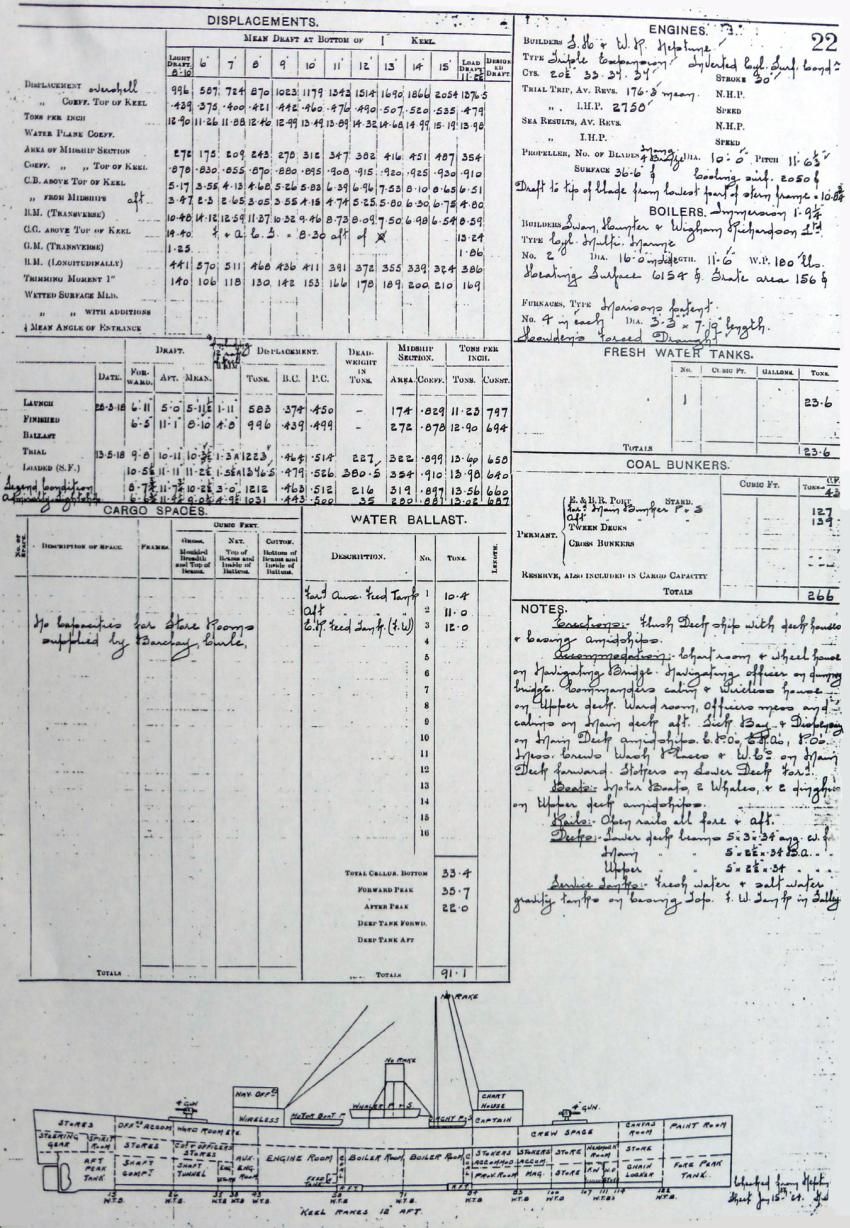 DISPLACEMENTS.
MEAN DRAFT AT BOTTOM OF KEEL.
LIGHT DRAFT. 8·10 6' 7' 8' 9' 10' 11' 12' 13' 14' 15' LOAD DRAFT DESIGNED DRAFT.
DISPLACEMENT overshell 996 587 724 870 1023 1179 1343 1514 1690 1866 2054 1376·5
„ COEFF. TOP OF KEEL ·439 ·375 ·400 ·421 ·442 ·460 ·476 ·490 ·507 ·520 ·535 ·479
TONS PER INCH 12·90 11·26 11·88 12·46 12·99 13·49 13·89 14·32 14·68 14·99 15·19 13·98
WATER PLANE COEFF.
AREA OF MIDSHIP SECTION 272 175 209 243 278 312 347 382 416 451 487 354
COEFF. „ „ TOP OF KEEL ·878 ·830 ·855 ·870 ·880 ·895 ·908 ·915 ·920 ·925 ·930 ·910
C.B. ABOVE TOP OF KEEL 5·17 3·55 4·13 4·68 5·26 5·83 6·39 6·96 7·53 8·10 8·65 6·51
„ FROM MIDSHIPS aft 3·47 2·3 2·65 3·05 3·55 4·15 4·74 5·25 5·80 6·30 6·75 4·80
B.M. (TRANSVERSE) 10·48 14·12 12·59 11·37 10·32 9·46 8·73 8·09 7·50 6·98 6·54 8·59
C.G. ABOVE TOP OF KEEL 14·40 8·30 aft of 13·24
G.M. (TRANSVERSE) 1·25 1·86
B.M. (LONGITUDINALLY) 441 570 511 468 436 411 391 372 355 339 324 386
TRIMMING MOMENT 1" 140 106 118 130 142 153 166 178 189 200 210 169
WETTED SURFACE MLD.
„ „ WITH ADDITIONS
½ MEAN ANGLE OF ENTRANCE
DRAFT. DISPLACEMENT. DEAD-WEIGHT IN TONS. MIDSHIP SECTION. TONS PER INCH.
DATE. FORWARD. AFT. MEAN. TONS. B.C. P.C. AREA. COEFF. TONS. CONST.
LAUNCH 28·3·18 6·11 5·0 5·11½ 1·11 583 ·374 ·450 - 174 ·829 11·23 797
FINISHED 6·5 11·1 8·10 4·8 996 ·439 ·499 - 272 ·878 12·90 694
BALLAST
TRIAL 13·5·18 9·8 10·11 1223 ·464 ·514 227 322 ·899 13·60 658
LOADED (S.F.) 11·11 11·2½ 1376·5 ·479 ·526 380·5 354 ·910 13·98 640
Legend Condition 8·7½ 11·7½ 10·2½ 3·0 1212 ·463 ·512 216 319 ·897 13·56 660
1031 ·443 ·500 35 280 ·881 13·02 687
CARGO SPACES.
CUBIC FEET.
No. of SPACE. DESCRIPTION OF SPACE. FRAMES. GROSS. Moulded Breadth and Top of Beams. NET. Top of Beams and Inside of Battens. COTTON. Bottom of Beams and Inside of Battens.
No Capacities for Store Rooms
supplied by Barclay Curle,
TOTALS
WATER BALLAST.
DESCRIPTION. No. TONS. LENGTH.
Ford Aux. Feed Tank 1 10·4
Aft 2 11·0
E.R. Feed Tank (F.W) 3 12·0
4
5
6
7
8
9
10
11
12
13
14
15
16
TOTAL CELLUR. BOTTOM 33·4
FORWARD PEAK 35·7
AFTER PEAK 22·0
DEEP TANK FORWD.
DEEP TANK AFT
„ TOTALS 91·1
22
ENGINES.
BUILDERS S.H & W.R. Neptune
TYPE Triple Expansion Inverted Cyl. Surf. Cond
CYS. 20½ · 33·37·37 STROKE 30"
TRIAL TRIP, AV. REVS. 176·3 mean. N.H.P.
„ I.H.P. 2750 SPEED
SEA RESULTS, AV. REVS. N.H.P.
„ I.H.P. SPEED
PROPELLER, NO. OF BLADES DIA. 10·0 PITCH 11·6½
SURFACE 36·6 Cooling surf. 2050
Draft to tip of blade from lowest part of stern frame = 10·8¾
Immersion 1·9¼
BOILERS.
BUILDERS Swan, Hunter & Wigham Richardson Ltd
TYPE Cyl. Multi. Marine
No. 2 DIA. 16·0 LENGTH. 11·6 W.P. 180 lbs.
Heating Surface 6154 Grate area 156
FURNACES, TYPE Morisons patent.
No. 4 in each DIA. 3·3 × 7· length.
Howden's Forced Draught
FRESH WATER TANKS.
No. CUBIC FT. GALLONS. TONS.
1 23·6
TOTALS 23·6
COAL BUNKERS.
CUBIC FT. TONS 43
PERMANT.
E. & B.R. PORT STARD.
Ford Main Bunker P & S 127
Aft 139
TWEEN DECKS
CROSS BUNKERS
RESERVE, ALSO INCLUDED IN CARGO CAPACITY
TOTALS 266
NOTES.
Erections:- Flush Deck ship with deck houses
& casing amidships.
Accommodation:- Chart room & wheel house
on Navigating Bridge. Navigating Officer on dummy
bridge. Commanders cabin & Wireless house
on Upper deck. Ward room, Officers mess and
cabins on Main deck aft. Sick Bay & Dispensary
on Main Deck amidships. C.P.O's, E.R.A's, P.O's.
Mess. Crews Wash Places & W.C's on Main
Deck forward. Stokers on Lower Deck Ford.
Boats:- Motor Boats, 2 Whalers, & 2 dinghies
on Upper deck amidships.
Rails:- Open rails all fore & aft.
Decks:- Lower deck beams 5×3×·34 ang.
Main „ „ 5×2½×·34 B.A.
Upper „ 5×2½×·34
Service Tanks:- Fresh water & salt water
gravity tanks on Casing Top. F.W. Tank in Galley
NO RAKE
NO RAKE
NAV. OFFRS CHART HOUSE
4" GUN WIRELESS MOTOR BOAT P WHALER P & S CAPTAIN 4" GUN.
STORES OFFRS ACCOM WARD ROOM ETC CREW SPACE CANVAS ROOM PAINT ROOM
STEERING GEAR SPIRIT ROOM STORES STORE
AFT PEAK TANK SHAFT COMPT SHAFT TUNNEL AUX. ENG. ROOM ENGINE ROOM BOILER ROOM BOILER ROOM STOKERS ACCOMMOD STOKERS ACCOM. STORE MAG. STORE CHAIN LOCKER FORE PEAK TANK.
W.T.B. W.T.B. W.T.B. W.T.B. W.T.B. W.T.B. W.T.B. W.T.B. W.T.B. W.T.B.
KEEL RAKES 12" AFT.
Checked from